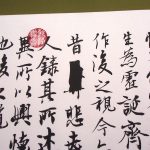 生為虛誕齊
作後之視今
昔悲夫
人錄其所述
異所以興懷
也後之